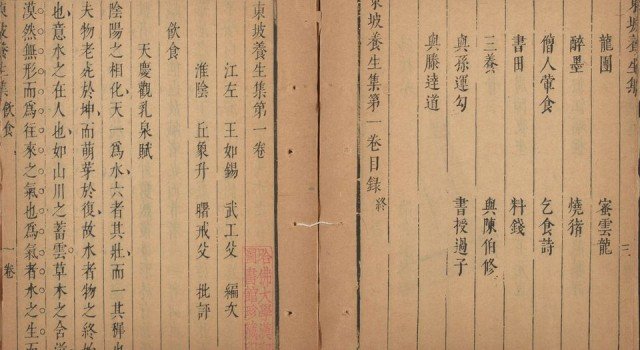 東坡養生集 三
龍團 蜜雲龍
醉墨 燒猪
僧人葷食 乞食詩
書田 料錢
三養 與陳伯修
與孫運勾 書授過子
與滕達道
東坡養生集第一卷目錄 終
東坡養生集第一卷
江左 王如錫 武工父 編次
淮陰 丘象升 曙戒父 批評
飲食
天慶觀乳泉賦
陰陽之相化天一爲水六者其壯而一其穉也
夫物老死於坤而萌芽於復故水者物之終始
也意水之在人也如山川之蓄雲草木之含滋
漠然無形而爲往來之氣也爲氣者水之生而
東坡養生集 飲食 一卷
哈佛大學漢
圖書館珍藏